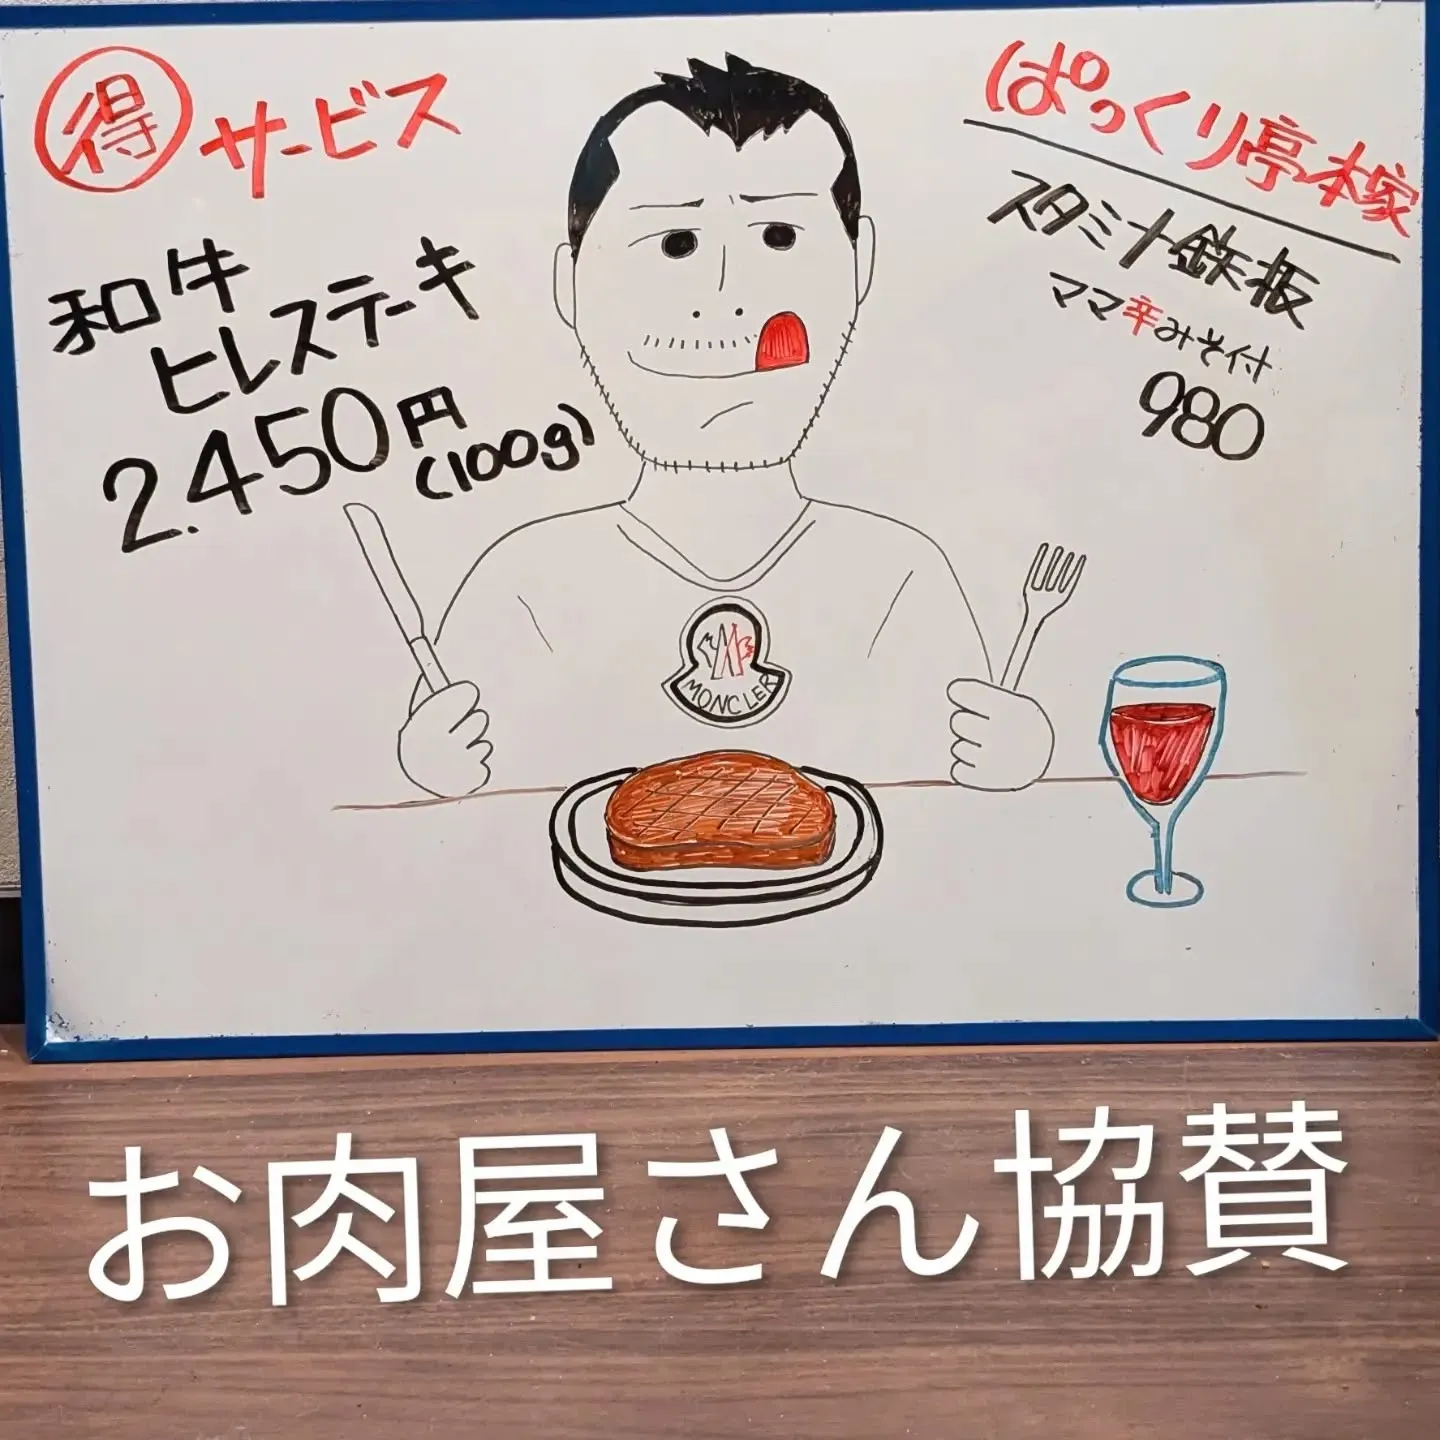 得サービス
和牛
ヒレステーキ
2.450円
(100g)
ぱっくり亭本家
スタミナ鉄板
ママ辛みそ付
980
MONCLER
お肉屋さん協賛